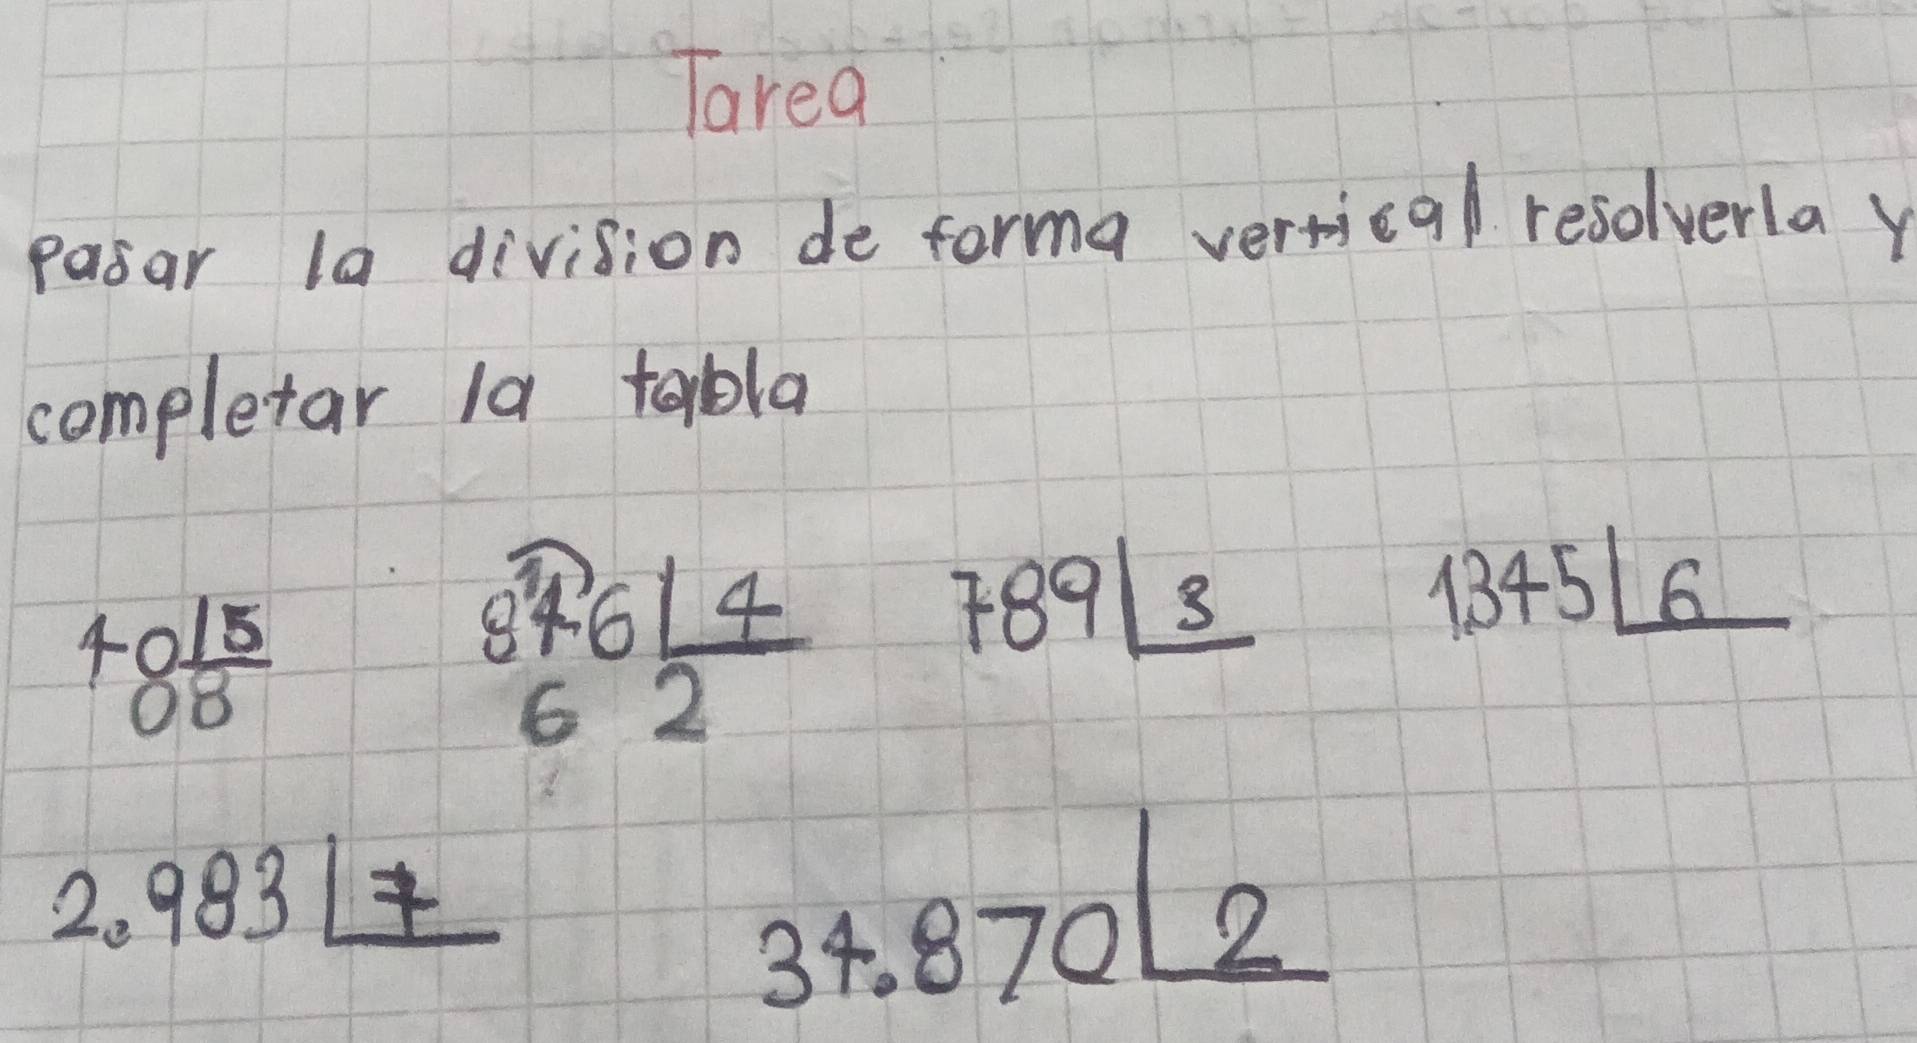 Tarea
Pasar la division de forma vertical resolverla y
completar la tabla
40 5 846 4 789 3 1345 6
08 6 2
2.983 7 34.870 2